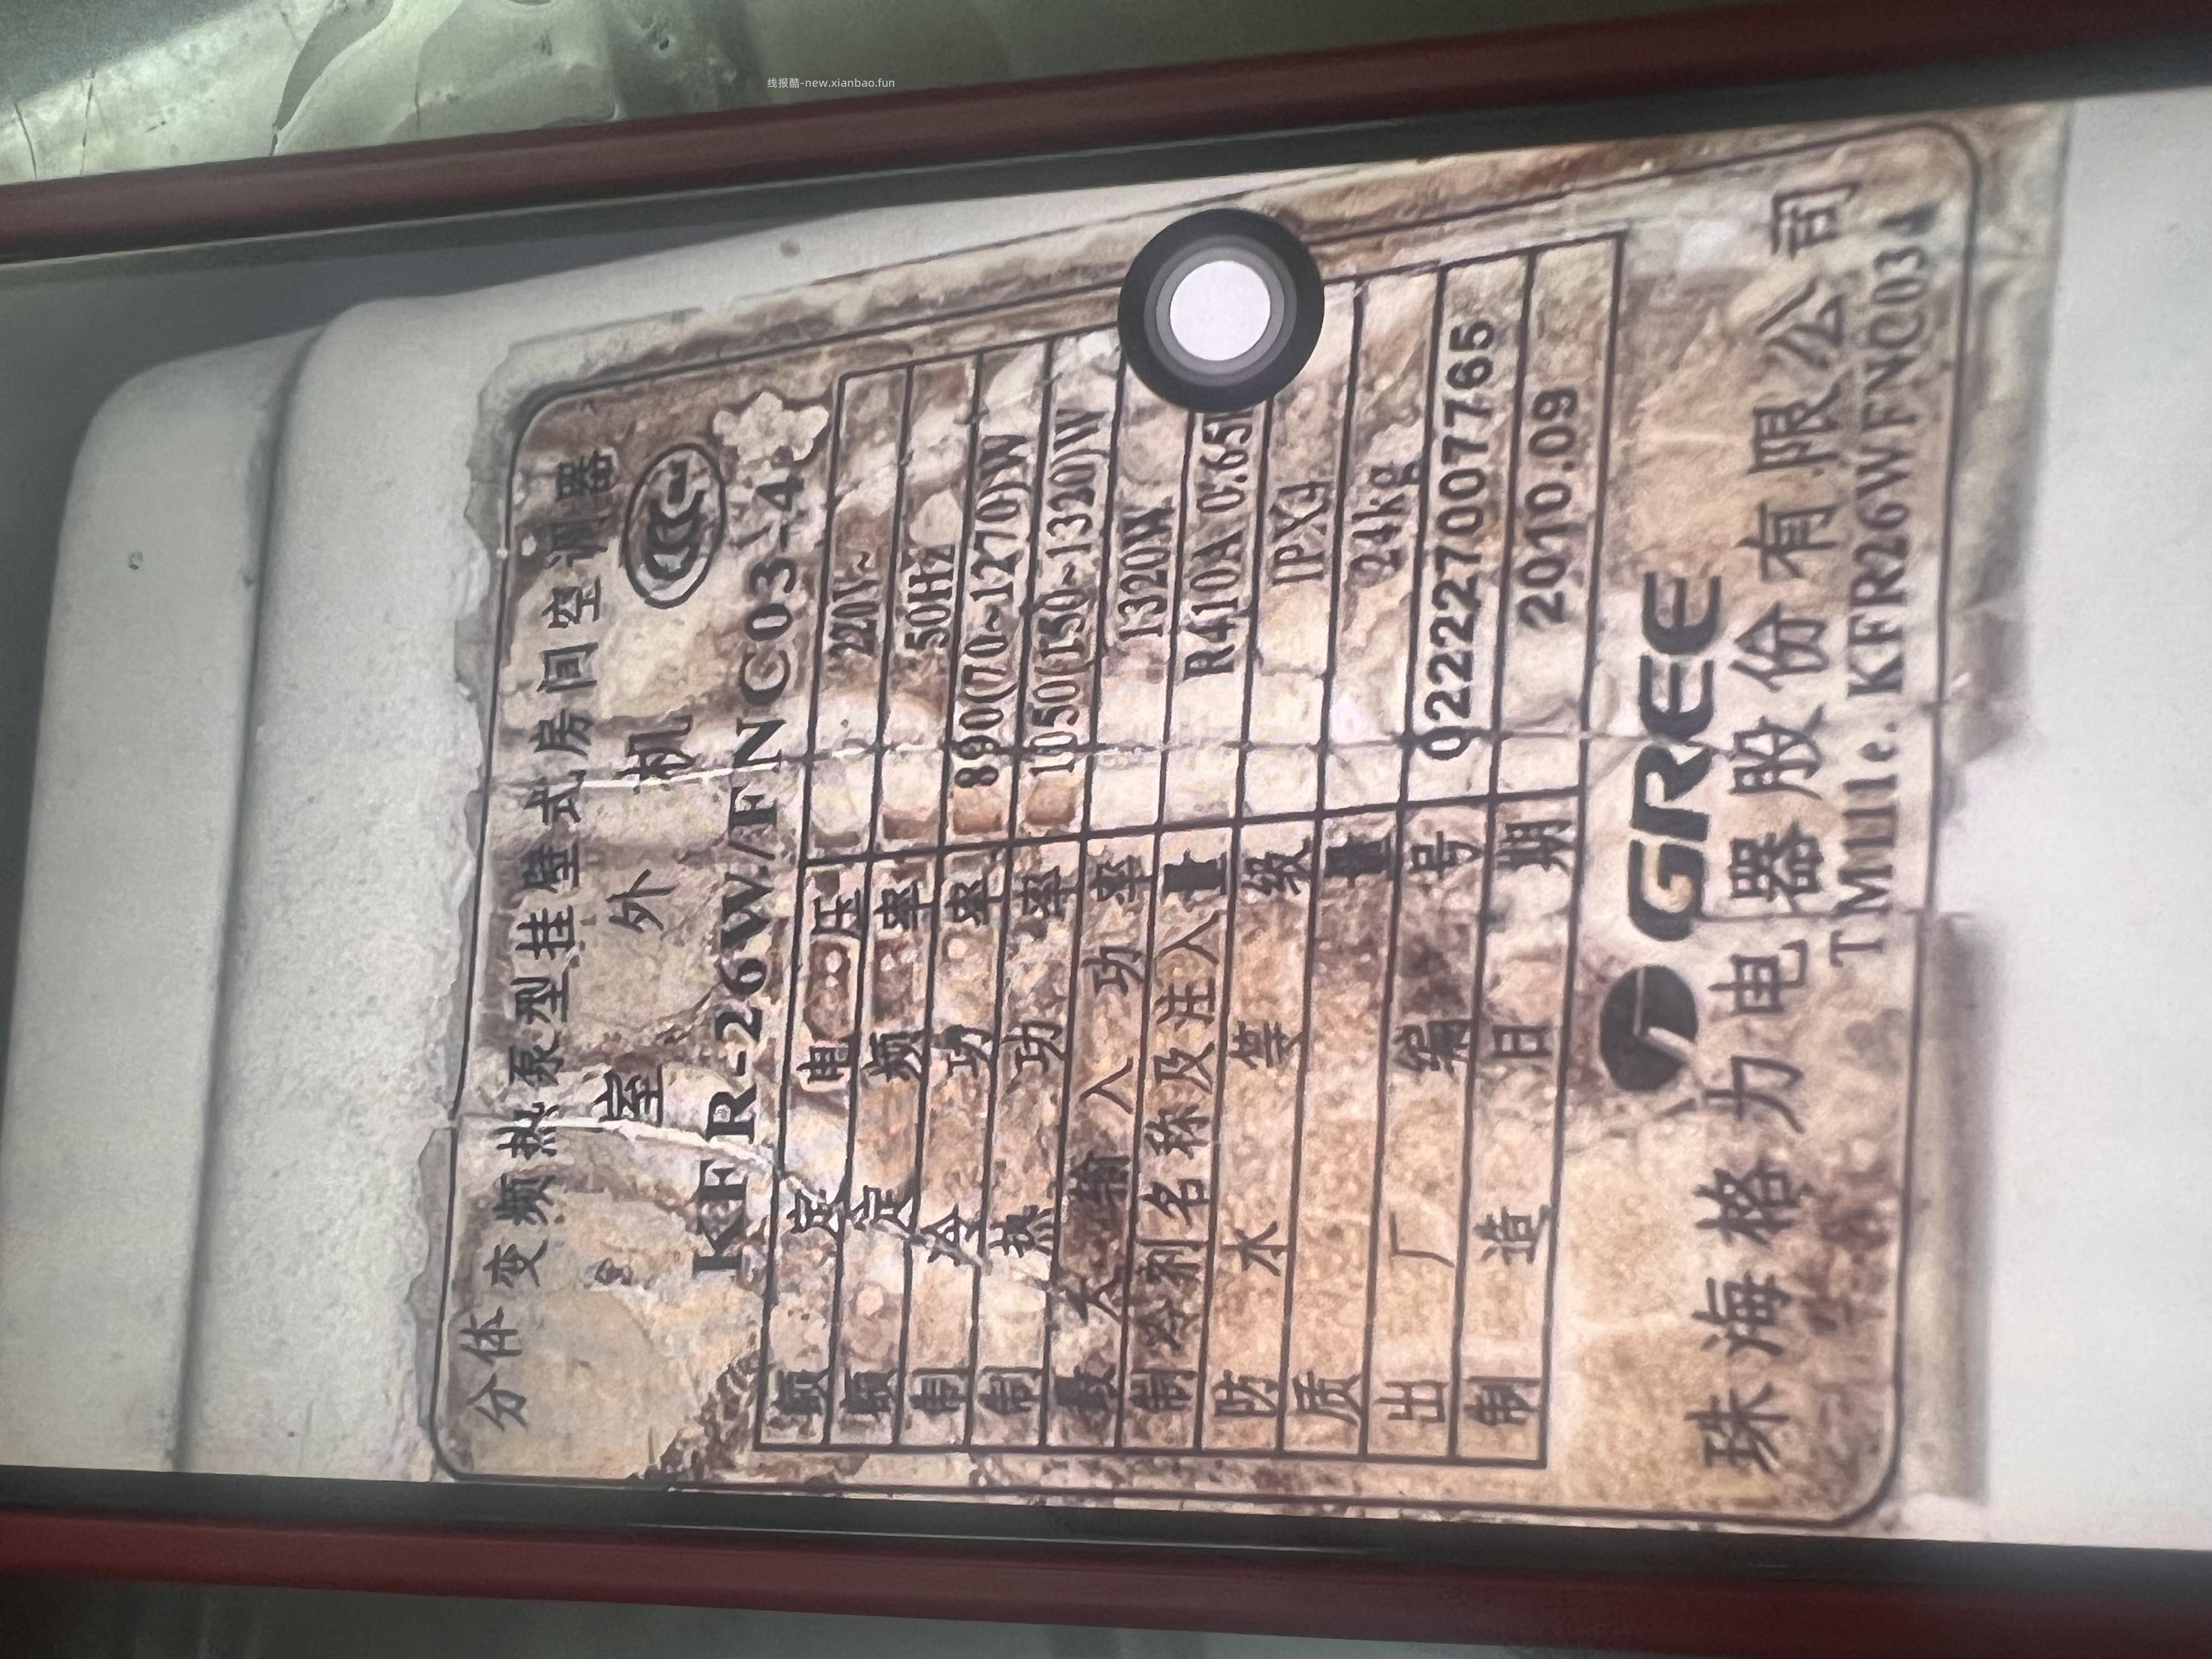 线报酷-new.xianbao.fun
分体变频热泵型挂壁式房间空调器
室外机
KFR-26W/FNC03-4
额定电压 220V~
额定频率 50Hz
制冷功率 890(70~1270)W
制热功率 1050(150~1320)W
最大输入功率 1320W
制冷剂名称及注入量 R410A 0.65
防水等级 IPX4
质量 24kg
出厂编号 0222270077​65
制造日期 2010.09
GREE
珠海格力电器股份有限公司
TM111e.KFR26WFNC034